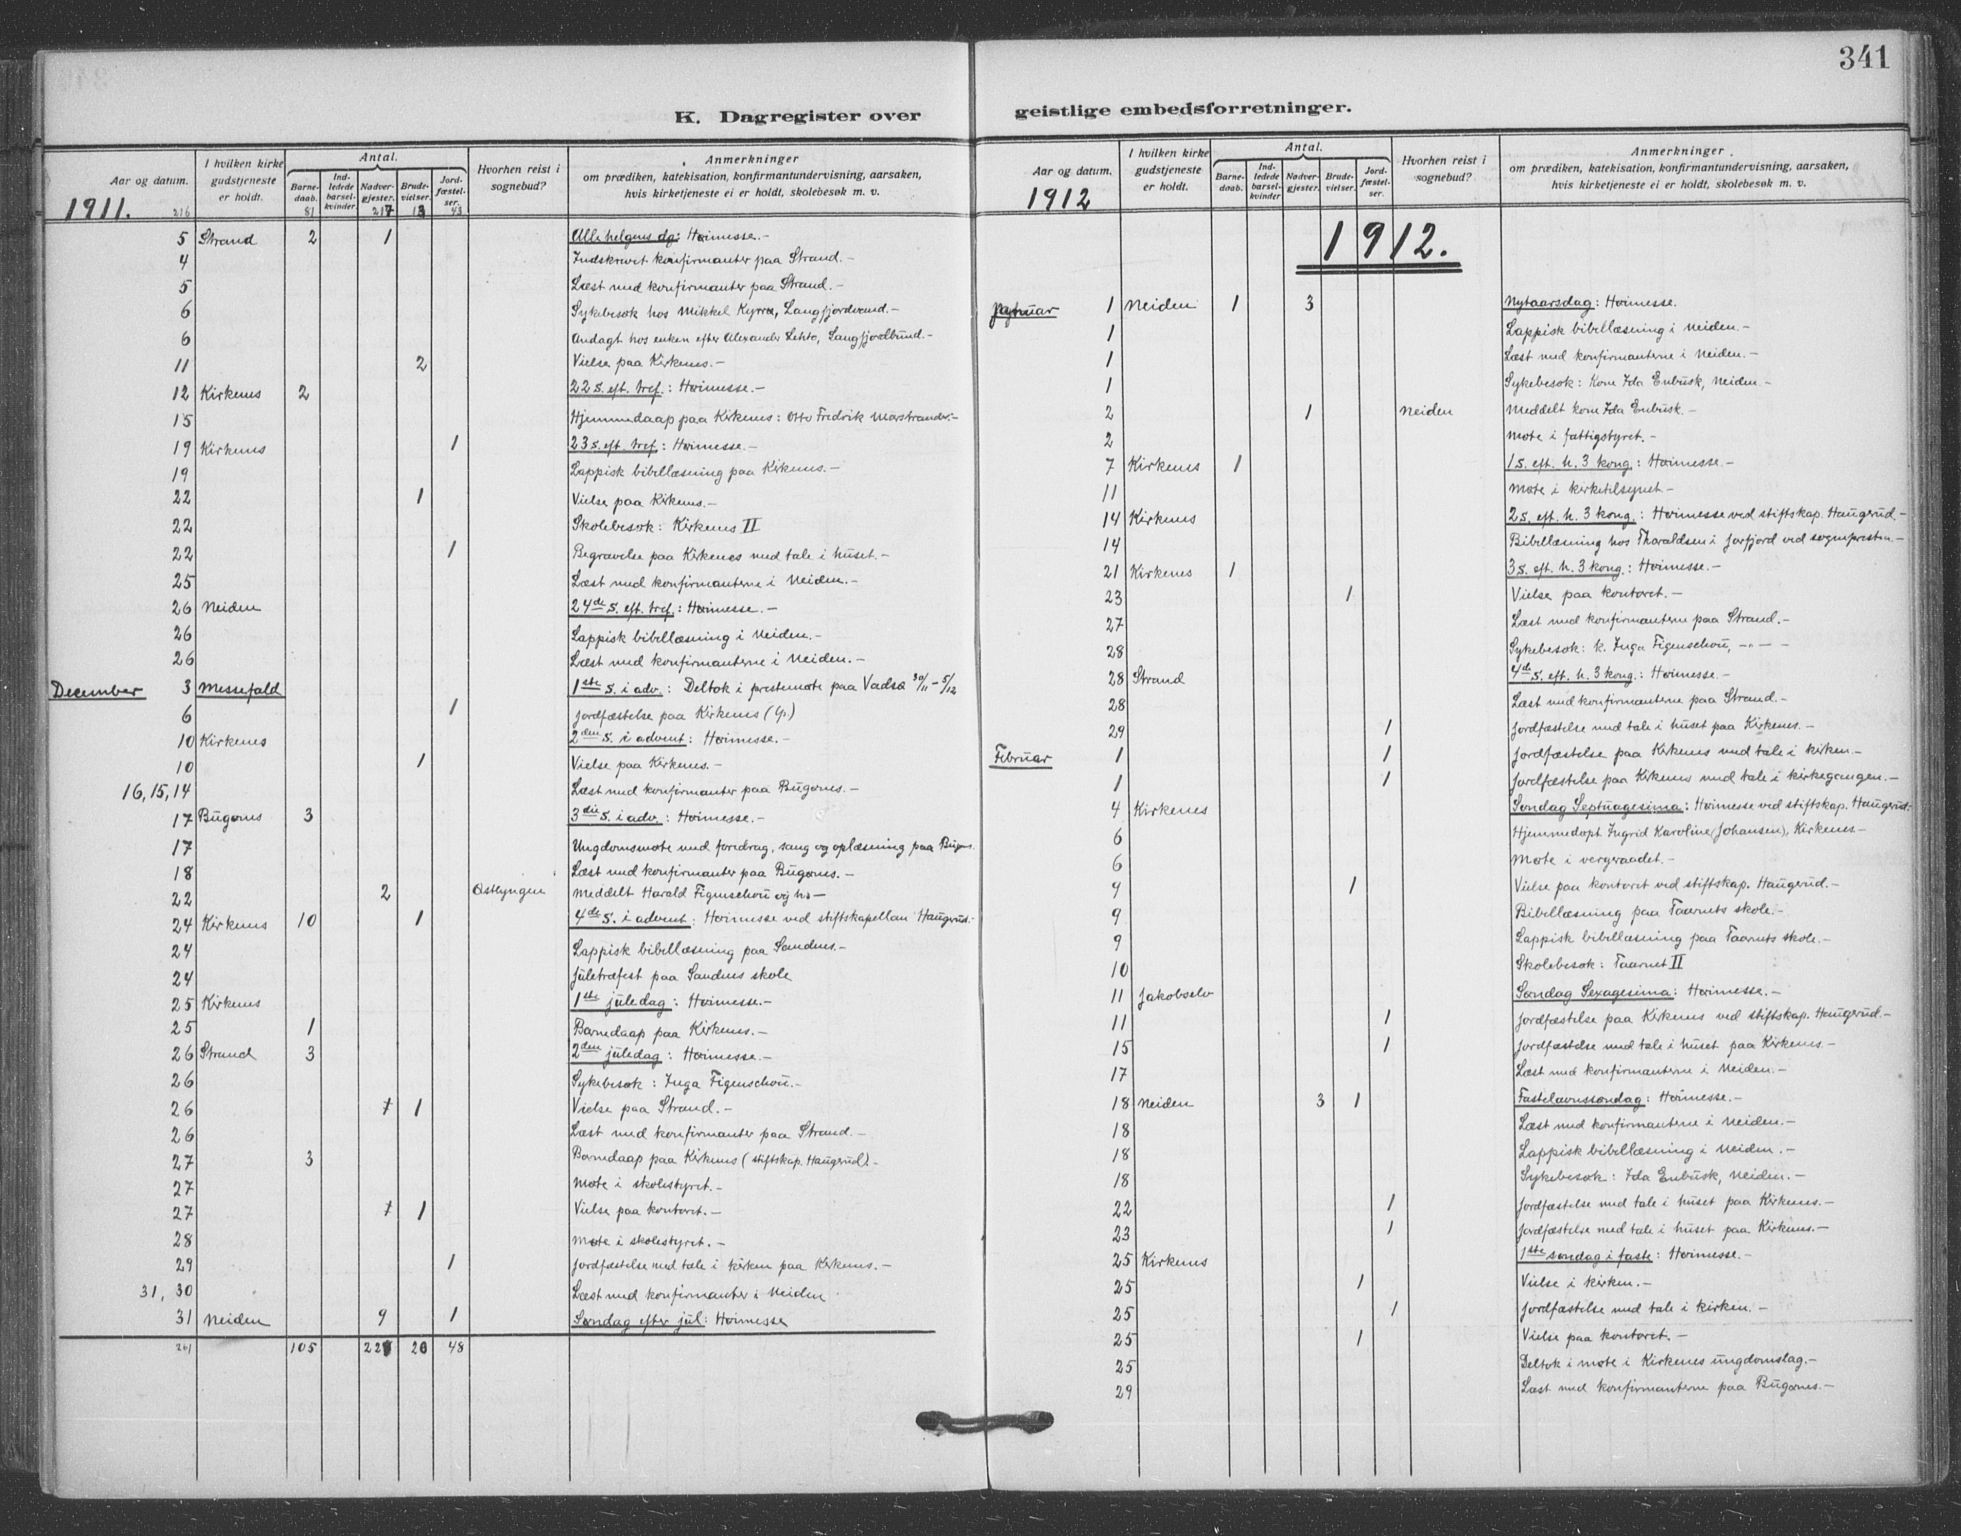 341
K. Dagregister over
Aar og datum.
I hvilken kirke gudstjeneste er holdt.
Antal.
Barne-daab.
Ind-ledede barsel-kvinder.
Nadver-gjester.
Brude-vielser.
Jord-fæstel-ser.
Hvorhen reist i sognebud?
Anmerkninger
om prædiken, katekisation, konfirmantundervisning, aarsaken,
hvis kirketjeneste ei er holdt, skolebesøk m. v.
1911. 216 81 217 13 43
5 Strand 2 1 Alle helgens dg: Høimesse.-
4 Indskrevet konfirmanter paa Strand.-
5 Læst med konfirmanter paa Strand.-
6 Sykebesøk hos Mikkel Kyrrø, Langfjordvand.-
6 Andagt hos enken efter Alexander Lehto, Langfjordbund.-
11 2 Vielse paa Kirkenes.-
12 Kirkenes 2 22 s. eft. tref.: Høimesse.-
15 Hjemmedaap paa Kirkenes: Otto Fredrik Marstrander.-
19 Kirkenes 1 23 s. eft. tref.: Høimesse.-
19 Lappisk bibellæsning paa Kirkenes.-
22 1 Vielse paa Kirkenes.-
22 Skolebesøk: Kirkenes II
22 1 Begravelse paa Kirkenes med tale i huset.-
25 Læst med konfirmanterne i Neiden.-
26 Neiden 24de s. eft. tref.: Høimesse.-
26 Lappisk bibellæsning i Neiden.-
26 Læst med konfirmanterne i Neiden.-
December 3 Messefald 1ste s. i adv.: Deltok i prestemøte paa Vadsø 30/11-5/12
6 1 Jordfæstelse paa Kirkenes
10 Kirkenes 2den s. i advent: Høimesse.-
10 1 Vielse paa Kirkenes.-
16, 15, 14 Læst med konfirmanter paa Bugønes.-
17 Bugønes 3 3die s. i adv.: Høimesse.-
17 Ungdomsmøte med foredrag, sang og oplæsning paa Bugøns.
18 Læst med konfirmanter paa Bugønes.-
22 2 Østlyngen Meddelt Harald Figenschou og
24 Kirkenes 10 1 4de s. i advent: Høimesse ved stiftskapellan Haugerud.-
24 Lappisk bibellæsning paa Sandnes.-
24 Juletræfest paa Sandnes skole
25 Kirkenes 1ste juledag: Høimesse.-
25 1 Barnedaap paa Kirkenes.-
26 Strand 3 2den juledag: Høimesse.-
26 Sykebesøk: Inga Figenschou.-
26 1 Vielse paa Strand.-
26 Læst med konfirmanter paa Strand.-
27 3 Barnedaap paa Kirkenes (stiftskap. Haugerud).-
27 Møte i skolestyret.-
27 1 Vielse paa kontoret.-
28 Møte i skolestyret.-
29 1 Jordfæstelse med tale i kirken paa Kirkenes.-
31, 30 Læst med konfirmanter i Neiden
31 Neiden 9 1 Søndag efter jul: Høimesse
261 105 20 48
geistlige embedsforretninger.
Aar og datum.
I hvilken kirke gudstjeneste er holdt.
Antal.
Barne-daab.
Ind-ledede barsel-kvinder
Nadver-gjester.
Brude-vielser.
Jord-fæstel-ser.
Hvorhen reist i sognebud?
Anmerkninger
om prædiken, katekisation, konfirmantundervisning, aarsaken,
hvis kirketjeneste ei er holdt, skolebesøk m. v.
1912
1912.
Januar 1 Neiden 1 3 Nytaarsdag: Høimesse.
1 Lappisk bibellæsning i Neiden.-
1 Læst med konfirmanterne i Neiden.-
1 Sykebesøk: Kone Ida Enbusk, Neiden.-
2 1 Neiden Meddelt kone Ida Enbusk.-
2 Møte i fattigstyret.-
7 Kirkenes 1 1 s. eft. h. 3 kong.: Høimesse.-
11 Møte i kirketilsynet.-
14 Kirkenes 2 s. eft. h. 3 kong.: Høimesse ved stiftskap. Haugerud.-
14 Bibellæsning hos Tharaldsen i Jarfjord ved sognepresten.-
21 Kirkenes 1 3 s. eft. h. 3 kong.: Høimesse.-
23 1 Vielse paa kontoret.-
27 Læst med konfirmanterne paa Strand.-
28 Sykebesøk: k. Inga Figenschou, -"-
28 Strand 4de s. eft. h. 3 kong.: Høimesse.-
28 Læst med konfirmanterne paa Strand.-
29 1 Jordfæstelse med tale i huset paa Kirkenes.-
Februar 1 1 Jordfæstelse paa Kirkenes med tale i kirken.-
1 1 Jordfæstelse paa Kirkenes med tale i kirkegangen.-
4 Kirkenes Søndag Septuagesima: Høimesse ved stiftskap. Haugerud.-
6 Hjemmedøpt Ingrid Karoline (Johansen), Kirkenes-
6 Møte i vergeraadet.-
9 1 Vielse paa kontoret ved stiftskap. Haugerud.-
9 Bibellæsning paa Taarnets skole.-
9 Lappisk bibellæsning paa Taarnets skole.-
10 Skolebesøk: Taarnet II
11 Jakobselv Søndag Sexagesima: Høimesse.-
11 1 Jordfæstelse paa Kirkenes ved stiftskap. Haugerud.-
15 1 Jordfæstelse med tale i huset paa Kirkenes.-
17 Læst med konfirmanterne i Neiden.-
18 Neiden 3 1 Fastelavnssøndag: Høimesse.-
18 Læst med konfirmanterne i Neiden.-
18 Lappisk bibellæsning i Neiden.-
18 Sykebesøk: Ida Enbusk, Neiden.-
22 1 Jordfæstelse med tale i huset paa Kirkenes.-
23 1 Jordfæstelse med tale i huset paa Kirkenes.-
25 Kirkenes 1ste søndag i faste: Høimesse.-
25 1 Vielse i kirken.-
25 1 Jordfæstelse med tale i kirken.-
25 1 Vielse paa kontoret.-
25 Deltok i møte i Kirkenes ungdomslag.-
29 Læst med konfirmanterne paa Bugønes.-